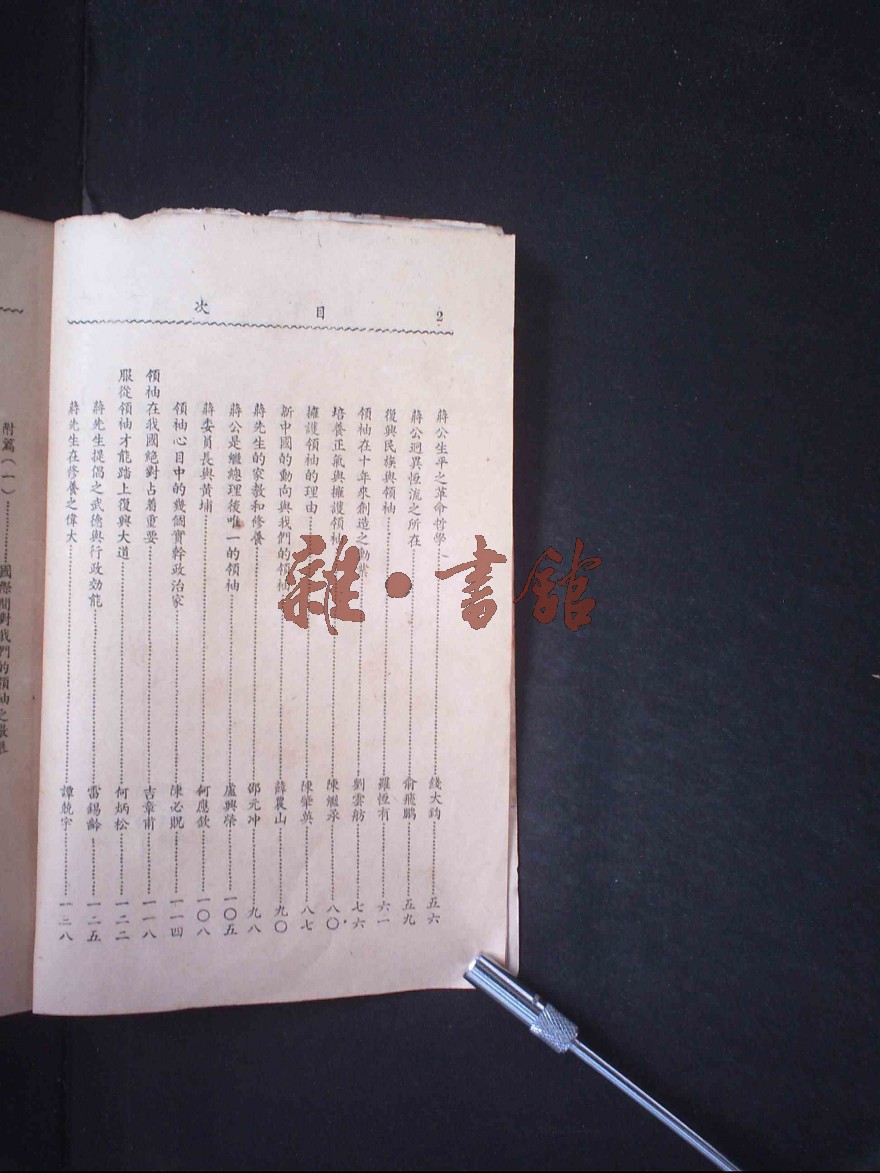 目 次
2
蔣公生平之革命哲學 錢大鈞 五六
蔣公迥異恆流之所在 俞飛鵬 五九
復興民族與領袖 羅恆有 六一
領袖在十年來創造之 劉雲舫 七六
培養正氣與擁護領袖 陳繼承 八〇
擁護領袖的理由 陳肇英 八七
新中國的動向與我們的領袖 薛農山 九〇
蔣先生的家教和修養 邵元冲 九八
蔣公是繼總理後唯一的領袖 盧興榮 一〇五
蔣委員長與黃埔 何應欽 一〇八
領袖心目中的幾個實幹政治家 陳必貺 一一四
領袖在我國絕對占着重要 吉章甫 一一八
服從領袖才能踏上復興大道 何炳松 一二二
蔣先生提倡之武德與行政効能 雷錫齡 一二五
蔣先生在修養之偉大 譚兢宇 一二八
附篇(一) 國際間對我們的領袖之
雜·書館